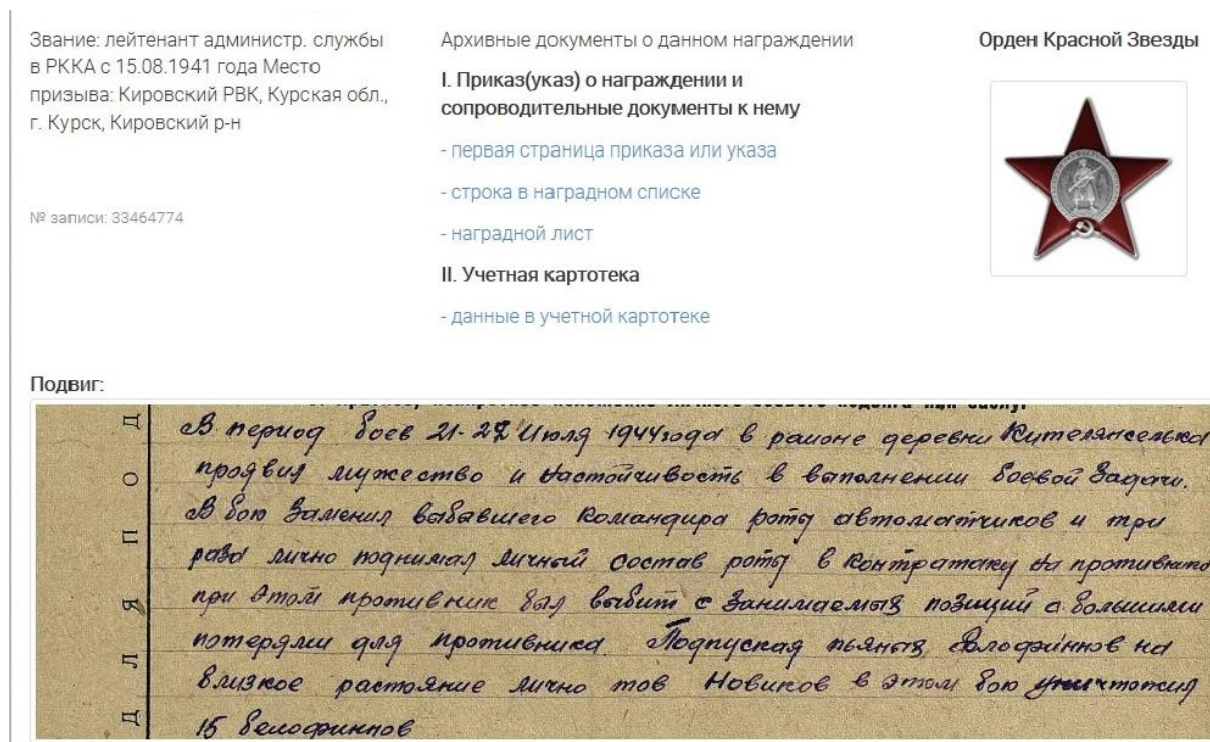 Звание: лейтенант администр. службы
в РККА с 15.08.1941 года Место
призыва: Кировский РВК, Курская обл.,
г. Курск, Кировский р-н
№ записи: 33464774
Архивные документы о данном награждении
I. Приказ(указ) о награждении и
сопроводительные документы к нему
- первая страница приказа или указа
- строка в наградном списке
- наградной лист
II. Учетная картотека
- данные в учетной картотеке
Орден Красной Звезды
Подвиг:
В период боев 21-22 Июля 1944года в раионе деревни
проявил мужество и настойчивость в выполнении боевой задачи.
В бою заменил выбавшего командира роты автоматчиков и три
раза лично поднимал личный состав роты в контратаку на противника
при этом противник был выбит с занимаемых позиций с большими
потерями для противника. Подпуская пьяных белофиннов на
близкое растояние лично тов Новиков в этом бою уничтожил
15 белофиннов
Д Л Я П О Д